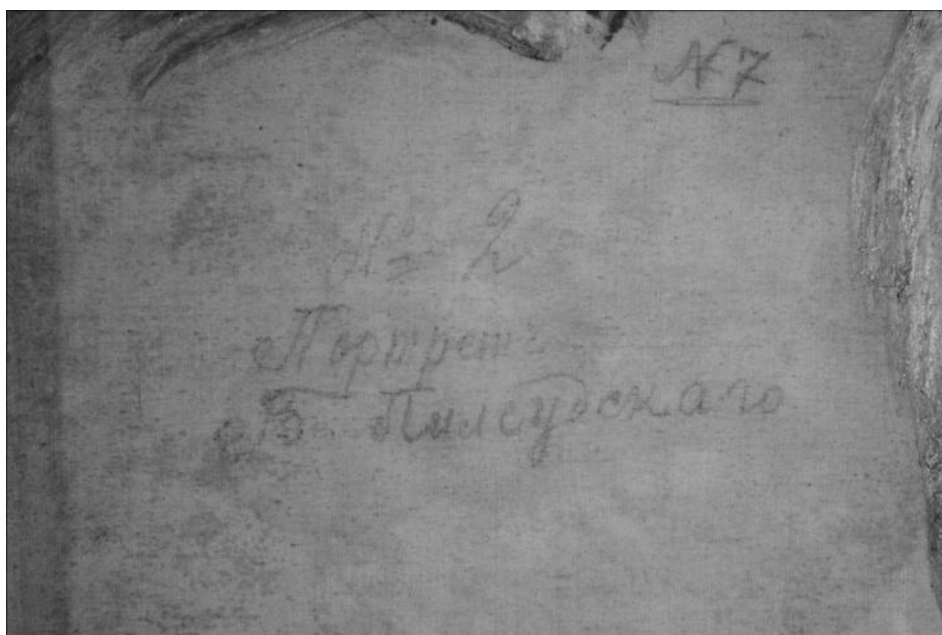 N 7
№ 2
Портретъ
Б. Пилсудскаго